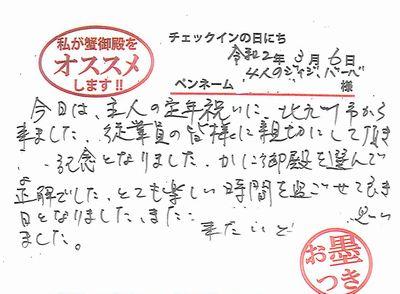 私が蟹御殿を
オススメ
します!!
チェックインの日にち
令和2年3月6日
ペンネーム 4人のジイジ、バーバ 様
今日は、主人の定年祝いに、北九州市から
来ました。従業員の皆様に親切にして頂き
記念となりました。かに御殿を選んで
正解でした。とても楽しい時間を過ごせてき
日となりました。また 来たいと 思い
ました。
お墨
つき